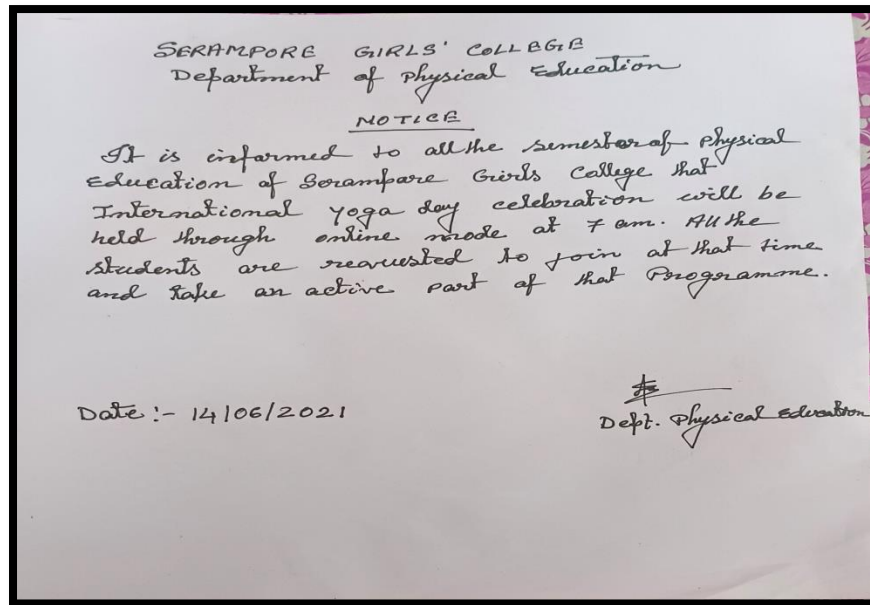 SERAMPORE GIRLS' COLLEGE
Department of Physical Education
NOTICE
It is informed to all the semester of Physical
Education of Serampore Girls College that
International yoga day celebration will be
held through online mode at 7 am. All the
students are requested to join at that time
and take an active part of that Programme.
Date :- 14/06/2021
Dept. Physical Education